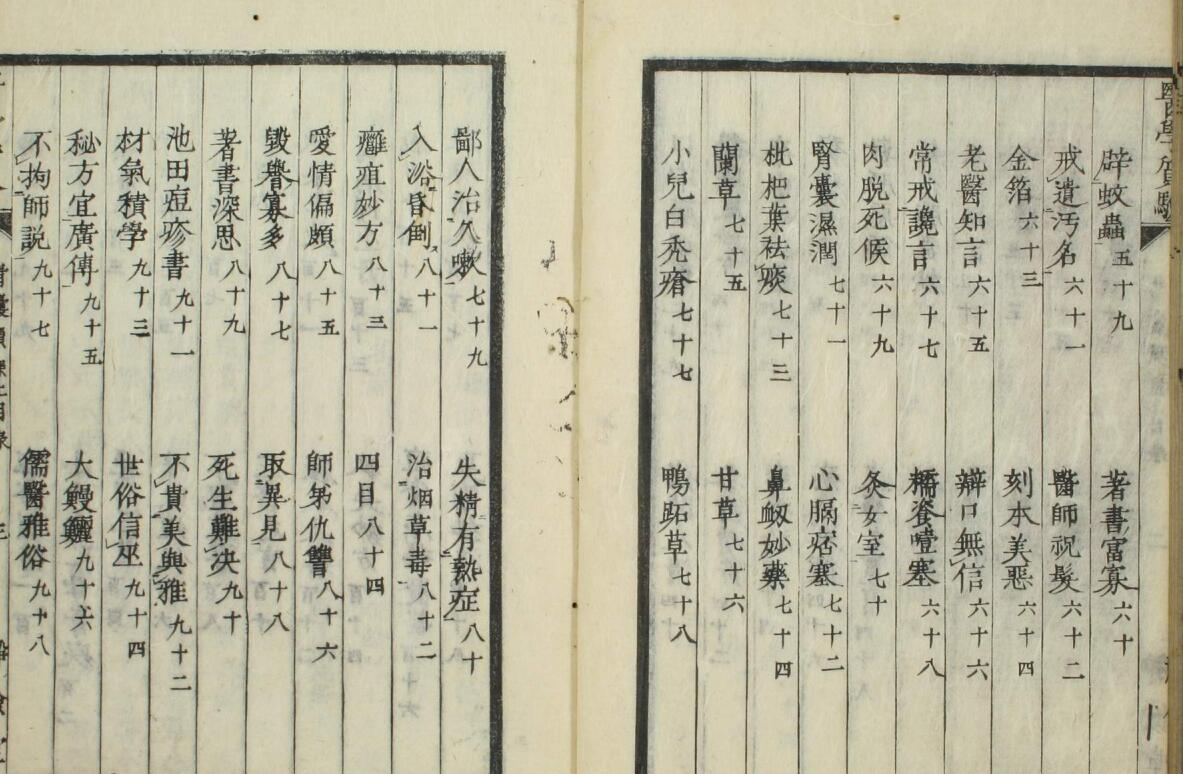 醫學質驗
辟蚊蟲 五十九 著書富寡 六十
戒遺汚名 六十一 醫師祝髮 六十二
金箔 六十三 刻本美惡 六十四
老醫知言 六十五 辯口無信 六十六
常戒讒言 六十七 糯餈噎塞 六十八
肉脱死候 六十九 灸女室 七十
腎囊濕潤 七十一 心膈痞塞 七十二
枇杷葉祛痰 七十三 鼻衂妙藥 七十四
蘭草 七十五 甘草 七十六
小兒白秃瘡 七十七 鴨跖草 七十八
鄙人治久嗽 七十九 失精有熟症 八十
入浴昏倒 八十一 治烟草毒 八十二
癰疽妙方 八十三 四目 八十四
愛情偏頗 八十五 師弟仇讐 八十六
毀譽寡多 八十七 取異見 八十八
著書深思 八十九 死生難决 九十
池田痘疹書 九十一 不貴美與雅 九十二
材氣積學 九十三 世俗信巫 九十四
秘方宜廣傳 九十五 大鰻鱺 九十六
不拘師説 九十七 儒醫雅俗 九十八